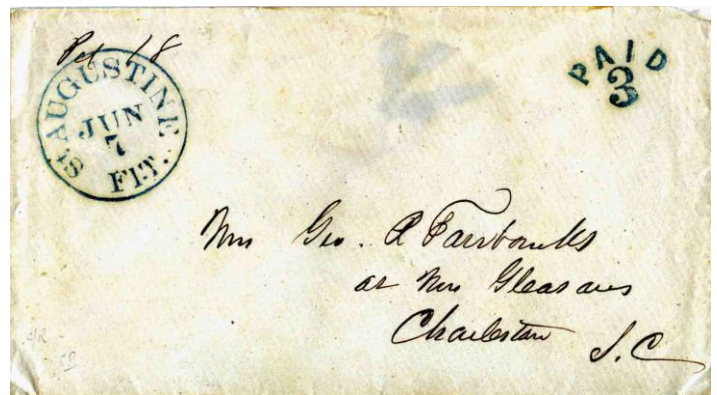 18
PAID
3
ST. AUGUSTINE
JUN
7
Flt.
Mrs Geo. R Fairbanks
at Mrs Gleasons
Charleston S.C